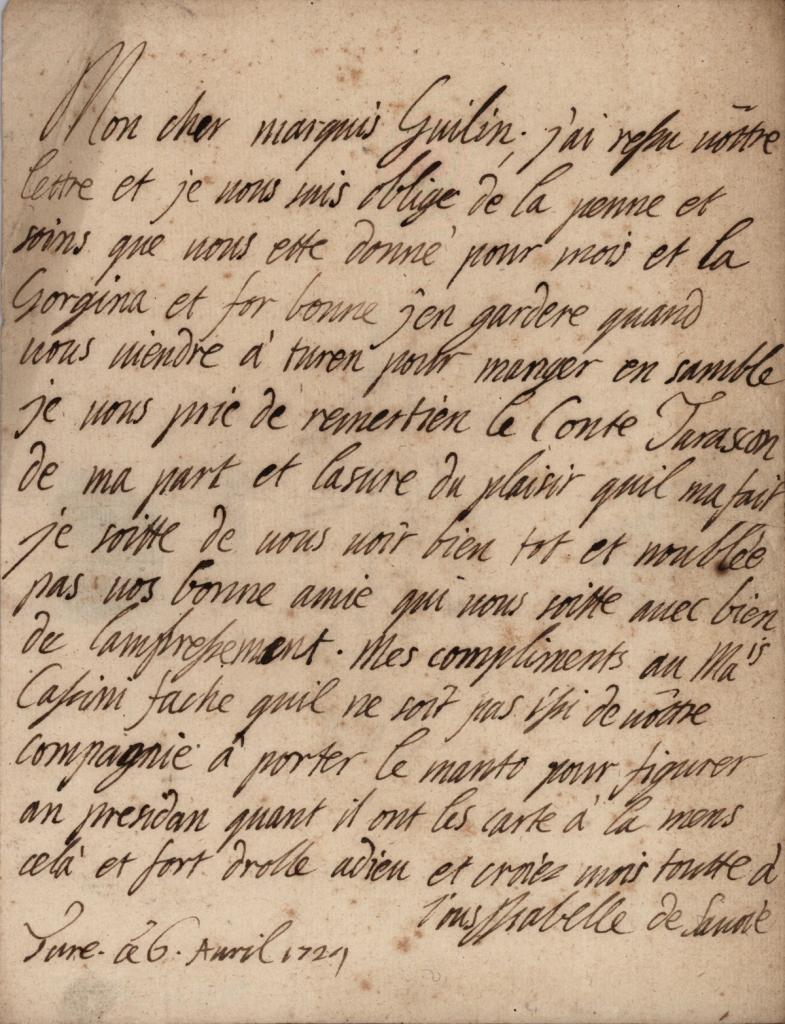 Mon cher marquis Guilin. j'ai resçu uôttre
lettre et je uous suis oblige de la penne et
soins que uous ette donné pour mois et la
Gorgina et for bonne j'en gardere quand
uous uiendre a turen pour manger en samble
je uous prie de remertien le Conte Tarascon
de ma part et lasure du plaisir quil ma fait
je soitte de uous uoir bien tot et noublée
pas uos bonne amie qui uous soitte auec bien
de lampressement. Mes compliments au Ma.is
Cassini fache quil ne soit pas issi de uôttre
compagnie a porter le manto pour figurer
an presidan quant il ont les carte a la mens
celà et fort drolle adieu et croiez mois toutte à
uous Isabelle de Sauoie
Ture. ce 6. Auril 1729